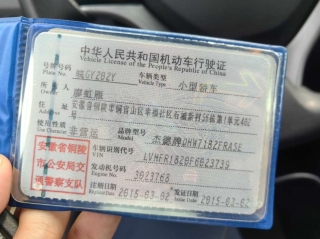 中华人民共和国机动车行驶证
Vehicle License of the People's Republic of China
号牌号码 皖GY282Y 车辆类型 小型轿车
Plate No. Vehicle Type
所有人 廖虹雁
Owner
住址 安徽省铜陵市铜官山区幸福社区石涵新村58栋第1单元402号
Address
使用性质 非营运 品牌型号 杰德牌DHW7182FRASE
Use Character Model
安徽省铜陵市公安局交通警察支队
车辆识别代号
VIN
发动机号码 3823768
Engine No.
注册日期 2015-03-02 发证日期 2015-03-02
Register Date Issue Date